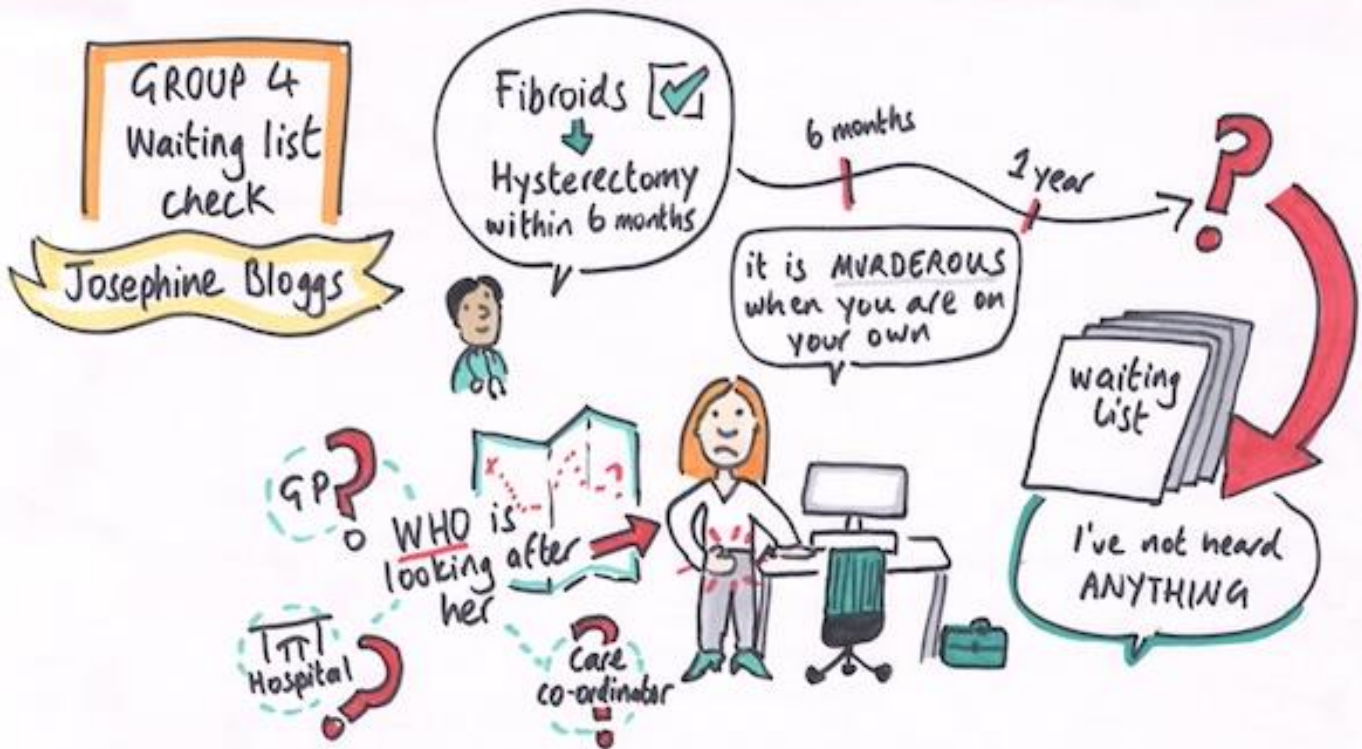 GROUP 4
Waiting list
check
Josephine Bloggs
Fibroids
Hysterectomy
within 6 months
6 months
1 year
?
it is MURDEROUS
when you are on
your own
waiting
list
I've not heard
ANYTHING
GP?
WHO is
looking after
her
Hospital ?
?
Care
co-ordinator